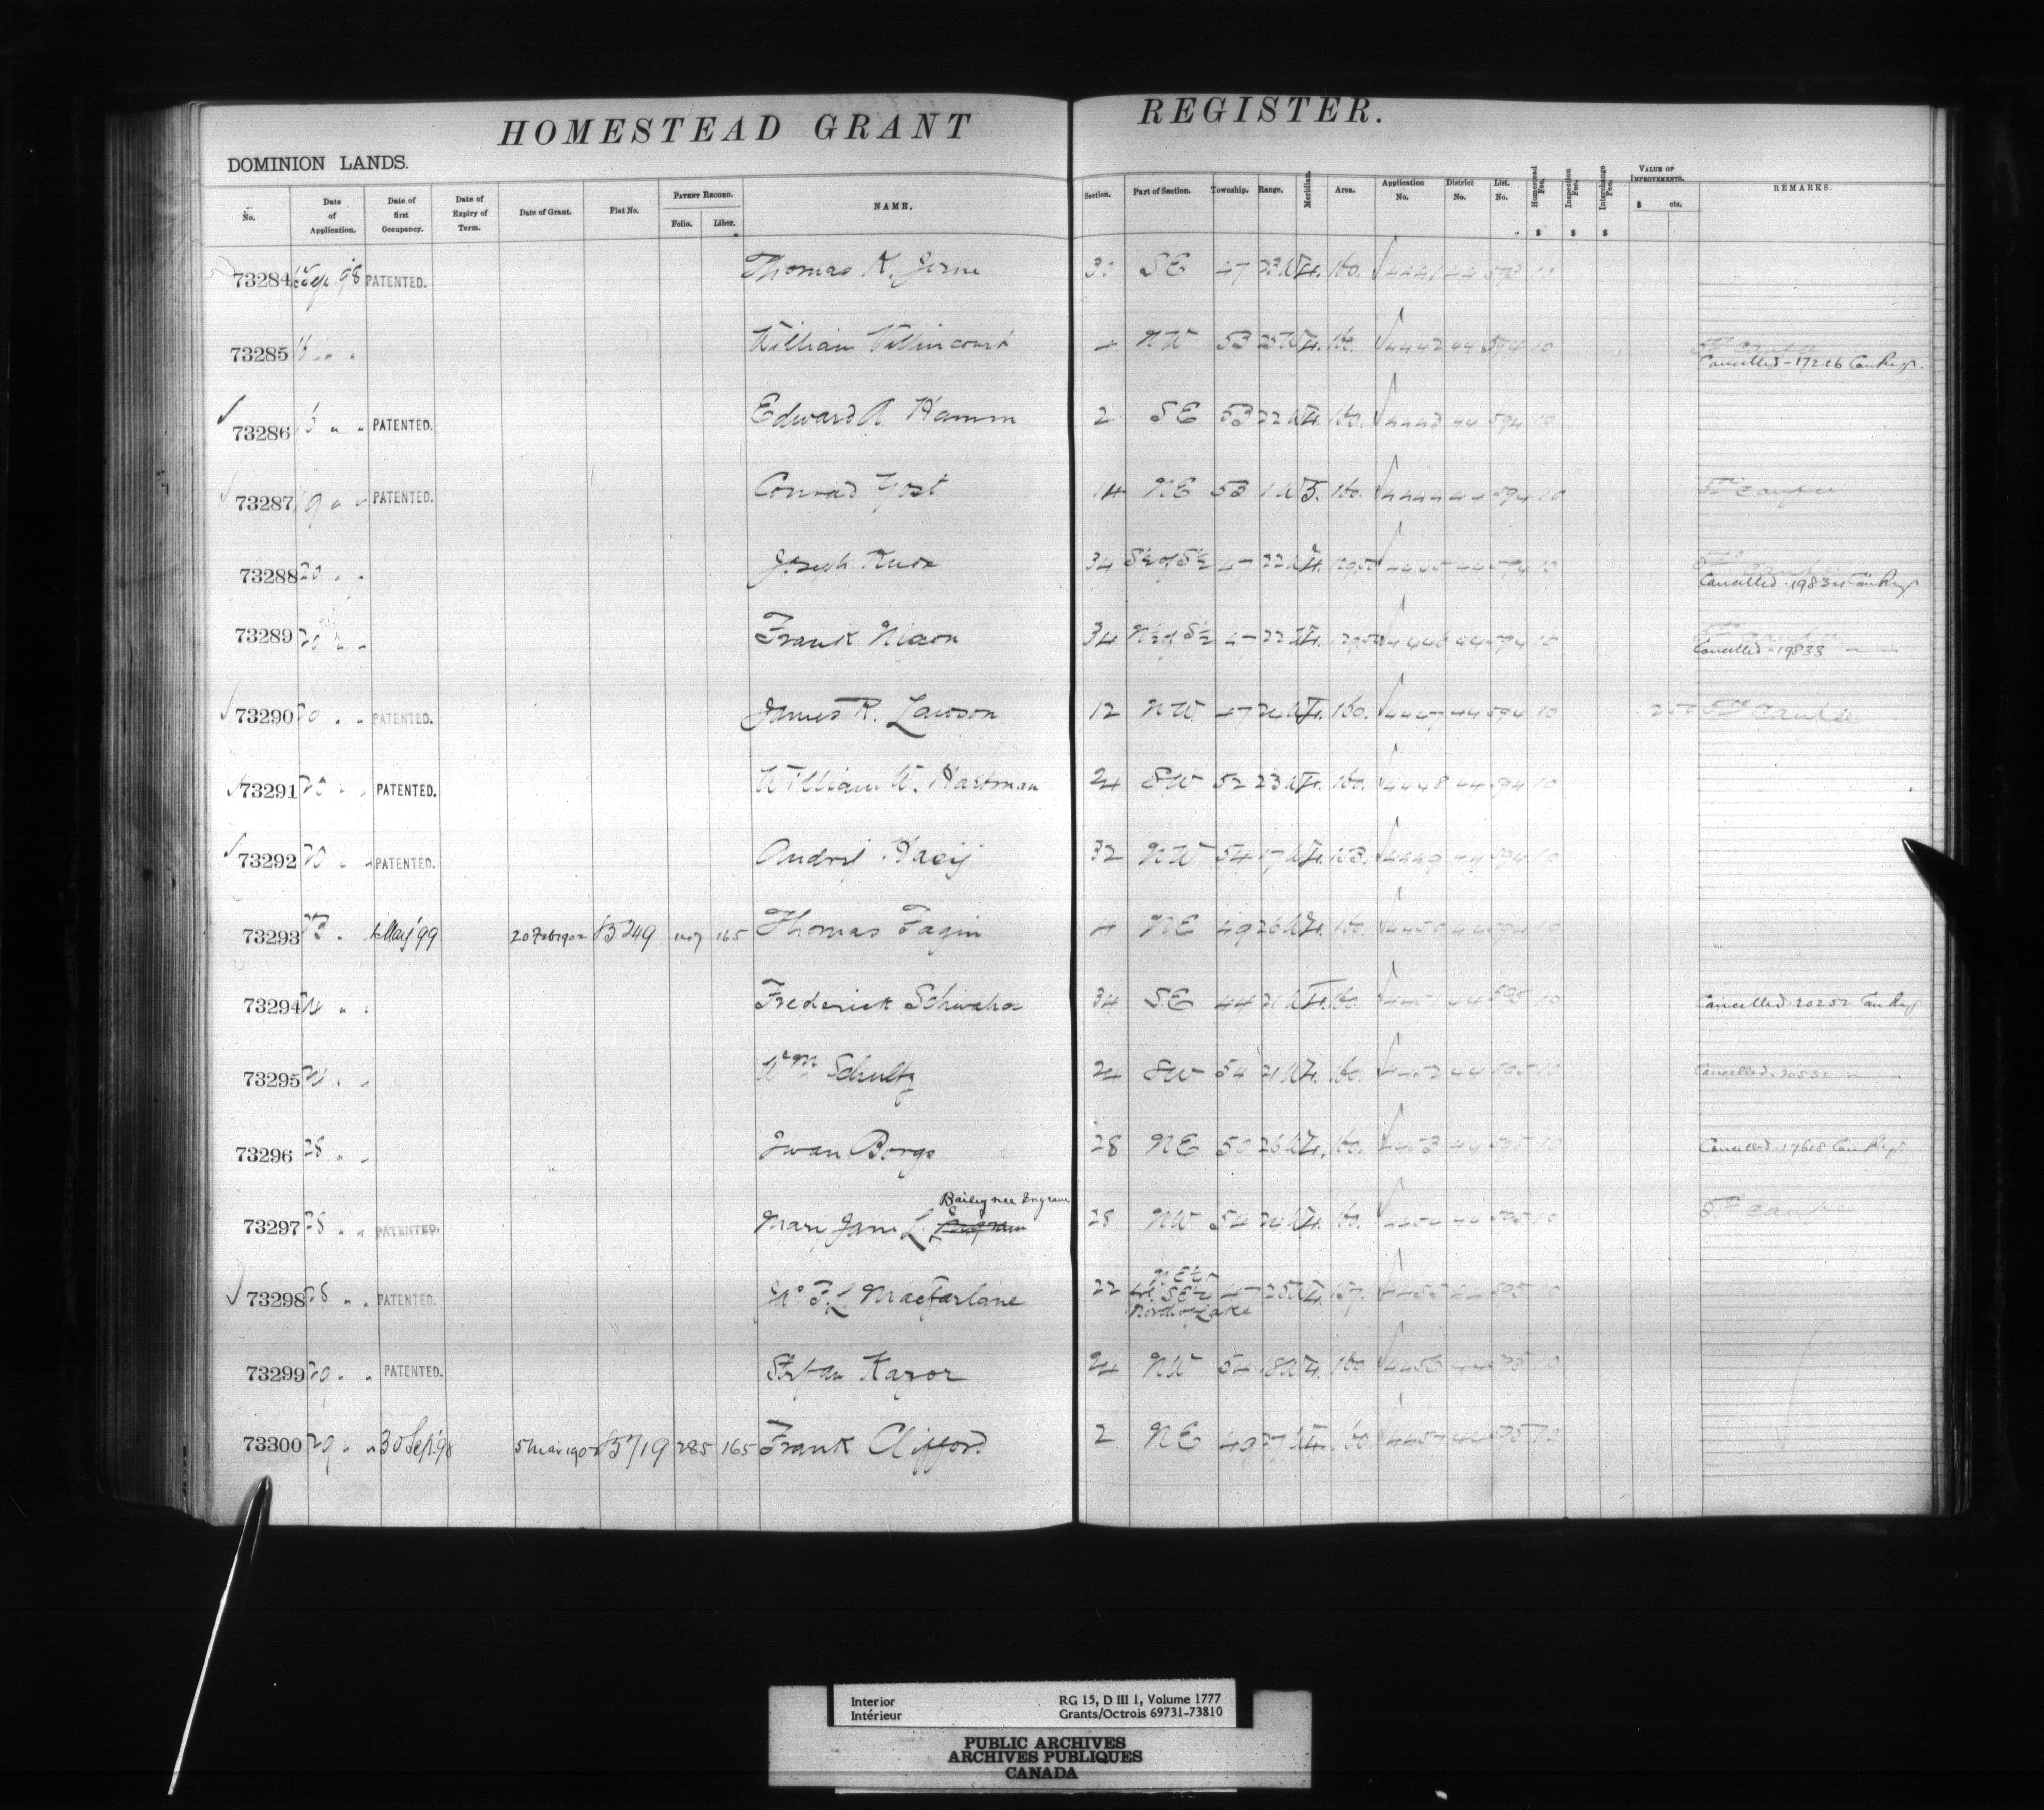 HOMESTEAD GRANT REGISTER.
DOMINION LANDS.
No. Date of Application. Date of first Occupancy. Date of Expiry of Term. Date of Grant. Fiat No. PATENT RECORD. Folio. Liber. NAME. Section. Part of Section. Township. Range. Meridian. Area. Application No. District No. List. No. Homestead Fee. $ Inspection Fee. $ Interchange Fee. $ VALUE OF IMPROVEMENTS. $ cts. REMARKS.
73284 PATENTED. Thomas K. 30 SE 47 23 W 4. 160. 4441 44 593 10
73285 William Villincourt NW 53 25 W 4. 160. 4442 44 594 10
Cancelled - 17226 Can Regr.
73286 " " PATENTED. Edward A. Hamm 2 SE 53 22 W 4. 160. 4443 44 594 10
73287 19 " " PATENTED. Conrad Yost 14 NE 53 1 W 5. 160. 4444 44 594 10
73288 20 " " Joseph Knox 34 S½ of S½ 47 22 W 4. 129.50 4445 44 594 10
Cancelled. 19834 Can Regr
73289 20 " " Frank Nixon 34 N½ of S½ 47 22 W 4. 129.50 4446 44 594 10
Cancelled - 19833 " "
73290 20 " " PATENTED. James R. Lawson 12 NW 47 24 W 4. 160. 4447 44 594 10 250
73291 20 " " PATENTED. William W. Hartman 24 SW 52 23 W 4. 160. 4448 44 594 10
73292 20 " " PATENTED. Andrij 32 NW 54 17 W 4. 153. 4449 44 594 10
73293 May '99 20 Feb 1902 165 Thomas Fagin NE 49 26 W 4. 160. 4450 44 594 10
73294 " " Frederick 34 SE 44 21 W 4. 160. 4451 44 595 10 Cancelled. 20252 Can Reg
73295 " " Wm Schultz 24 SW 54 21 W 4. 160. 4452 44 595 10 Cancelled. 20531 " "
73296 28 " " Iwan Borgo 28 NE 50 26 W 4. 160. 4453 44 595 10 Cancelled. 17618 Can Regr
Bailey nee Ingram
73297 28 " " PATENTED. Mary Jane L. Ingram 28 NW 54 24 W 4. 160. 4454 44 595 10
73298 28 " " PATENTED. F. L. MacFarlane 22 SE¼ 47 25 W 4. 157. 4455 44 595 10
North of Lake
73299 29 " " PATENTED. Stefan Kazor 24 NW 54 18 W 4. 160. 4456 44 595 10
73300 29 " " 30 Sep. '98 5 Mar 1902 285 165 Frank Clifford 2 NE 49 27 W 4. 160. 4457 44 595 10
Interior RG 15, D III 1, Volume 1777
Intérieur Grants/Octrois 69731-73810
PUBLIC ARCHIVES
ARCHIVES PUBLIQUES
CANADA